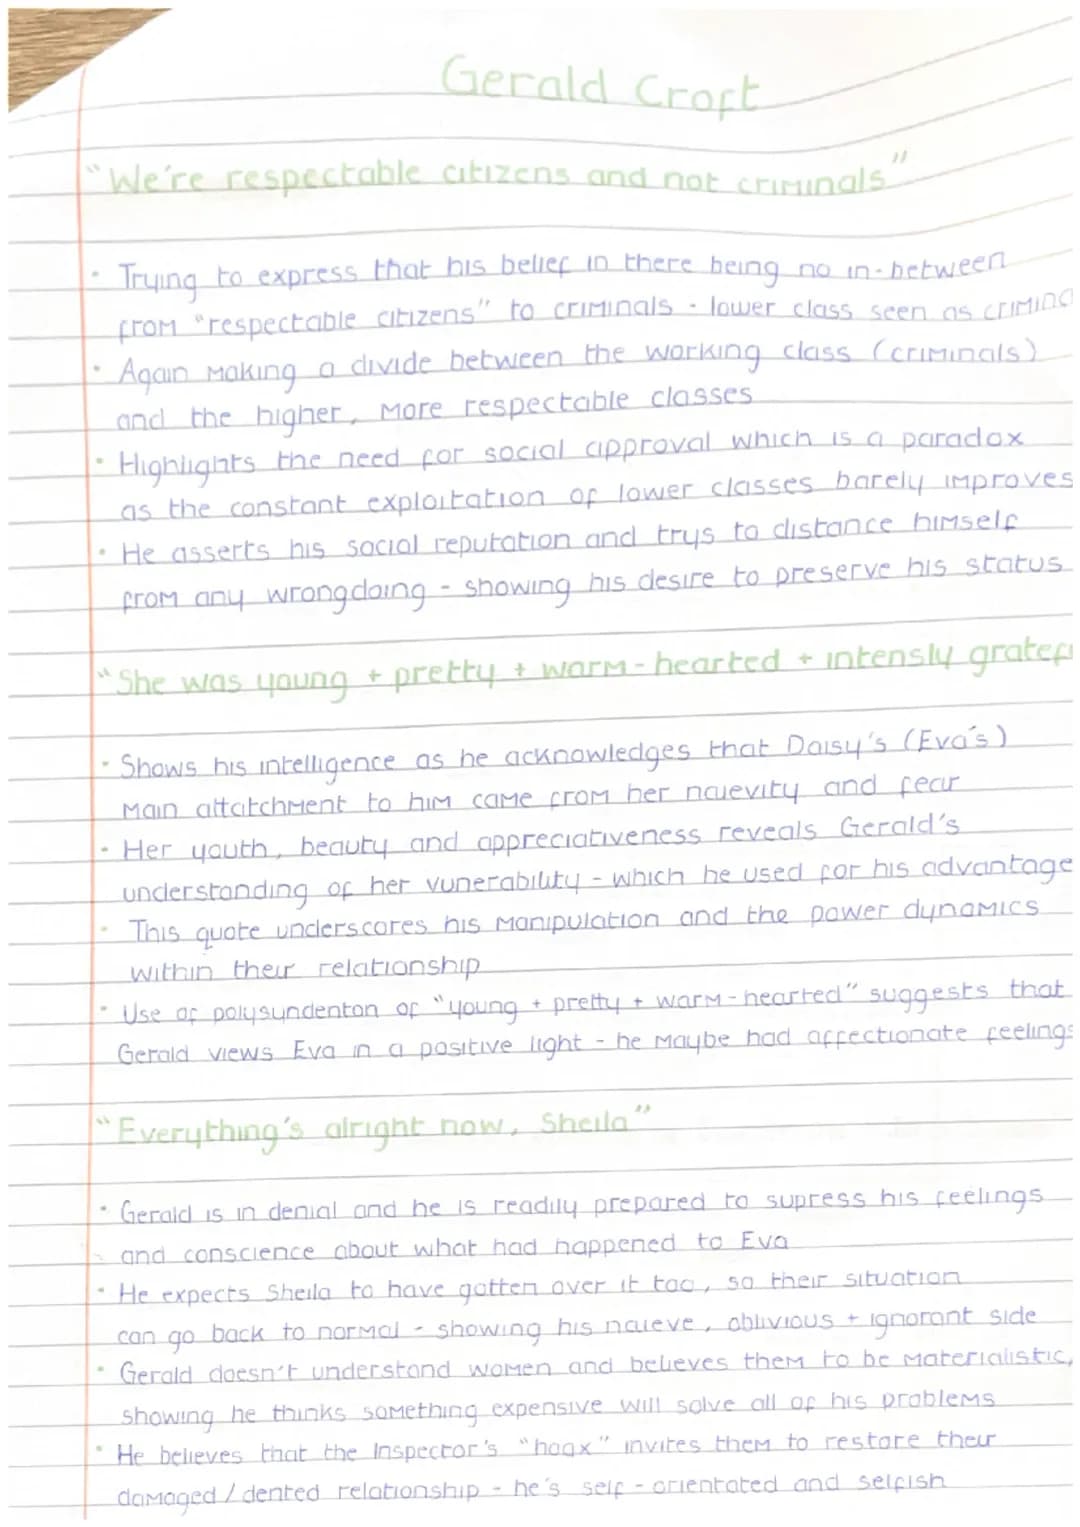 Gerald Croft
"We're respectable citizens and not criminals"
• Trying to express that his belief in there being no in-between
from "respectable citizens" to criminals - lower class seen as crimina
• Again making a divide between the working class (criminals)
and the higher, more respectable classes
• Highlights the need for social approval which is a paradox
as the constant exploitation of lower classes barely improves
• He asserts his social reputation and trys to distance himself
from any wrongdoing - showing his desire to preserve his status
"She was young + pretty + warm-hearted + intensly gratef
• Shows his intelligence as he acknowledges that Daisy's (Eva's)
main attatchment to him came from her naievity and fear
• Her youth, beauty and appreciativeness reveals Gerald's
understanding of her vunerability - which he used for his advantage
• This quote underscores his manipulation and the power dynamics
within their relationship
• Use of polysundenton of "young + pretty + warm-hearted" suggests that
Gerald views Eva in a positive light - he maybe had affectionate feelings
"Everything's alright now, Sheila"
• Gerald is in denial and he is readily prepared to supress his feelings
and conscience about what had happened to Eva
• He expects Sheila to have gotten over it too, so their situation
can go back to normal - showing his naieve, oblivious + ignorant side
• Gerald doesn't understand women and believes them to be materialistic,
showing he thinks something expensive will solve all of his problems
• He believes that the Inspector's "hoax" invites them to restore their
damaged / dented relationship - he's self-orientated and selfish